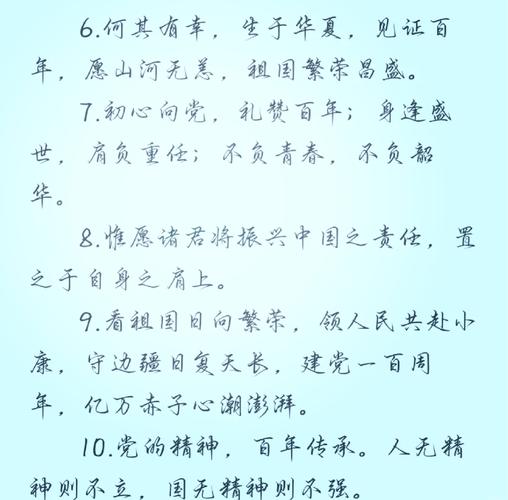 6.何其有幸，生于华夏，见证百
年，愿山河无恙，祖国繁荣昌盛。
7.初心向党，礼赞百年；身逢盛
世，肩负重任；不负青春，不负韶
华。
8.惟愿诸君将振兴中国之责任，置
之于自身之肩上。
9.看祖国日向繁荣，领人民共赴小
康，守边疆日复天长，建党一百周
年，亿万赤子心潮澎湃。
10.党的精神，百年传承。人无精
神则不立，国无精神则不强。